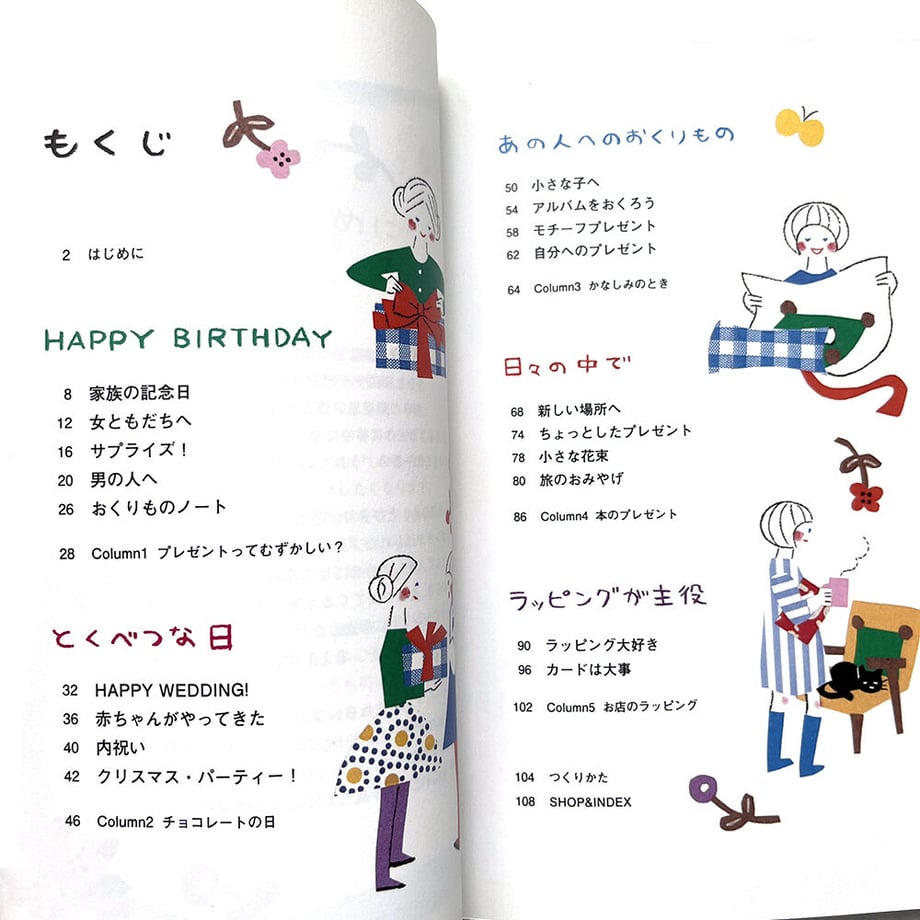 もくじ
2 はじめに
HAPPY BIRTHDAY
8 家族の記念日
12 女ともだちへ
16 サプライズ！
20 男の人へ
26 おくりものノート
28 Column1 プレゼントってむずかしい？
とくべつな日
32 HAPPY WEDDING!
36 赤ちゃんがやってきた
40 内祝い
42 クリスマス・パーティー！
46 Column2 チョコレートの日
あの人へのおくりもの
50 小さな子へ
54 アルバムをおくろう
58 モチーフプレゼント
62 自分へのプレゼント
64 Column3 かなしみのとき
日々の中で
68 新しい場所へ
74 ちょっとしたプレゼント
78 小さな花束
80 旅のおみやげ
86 Column4 本のプレゼント
ラッピングが主役
90 ラッピング大好き
96 カードは大事
102 Column5 お店のラッピング
104 つくりかた
108 SHOP&INDEX